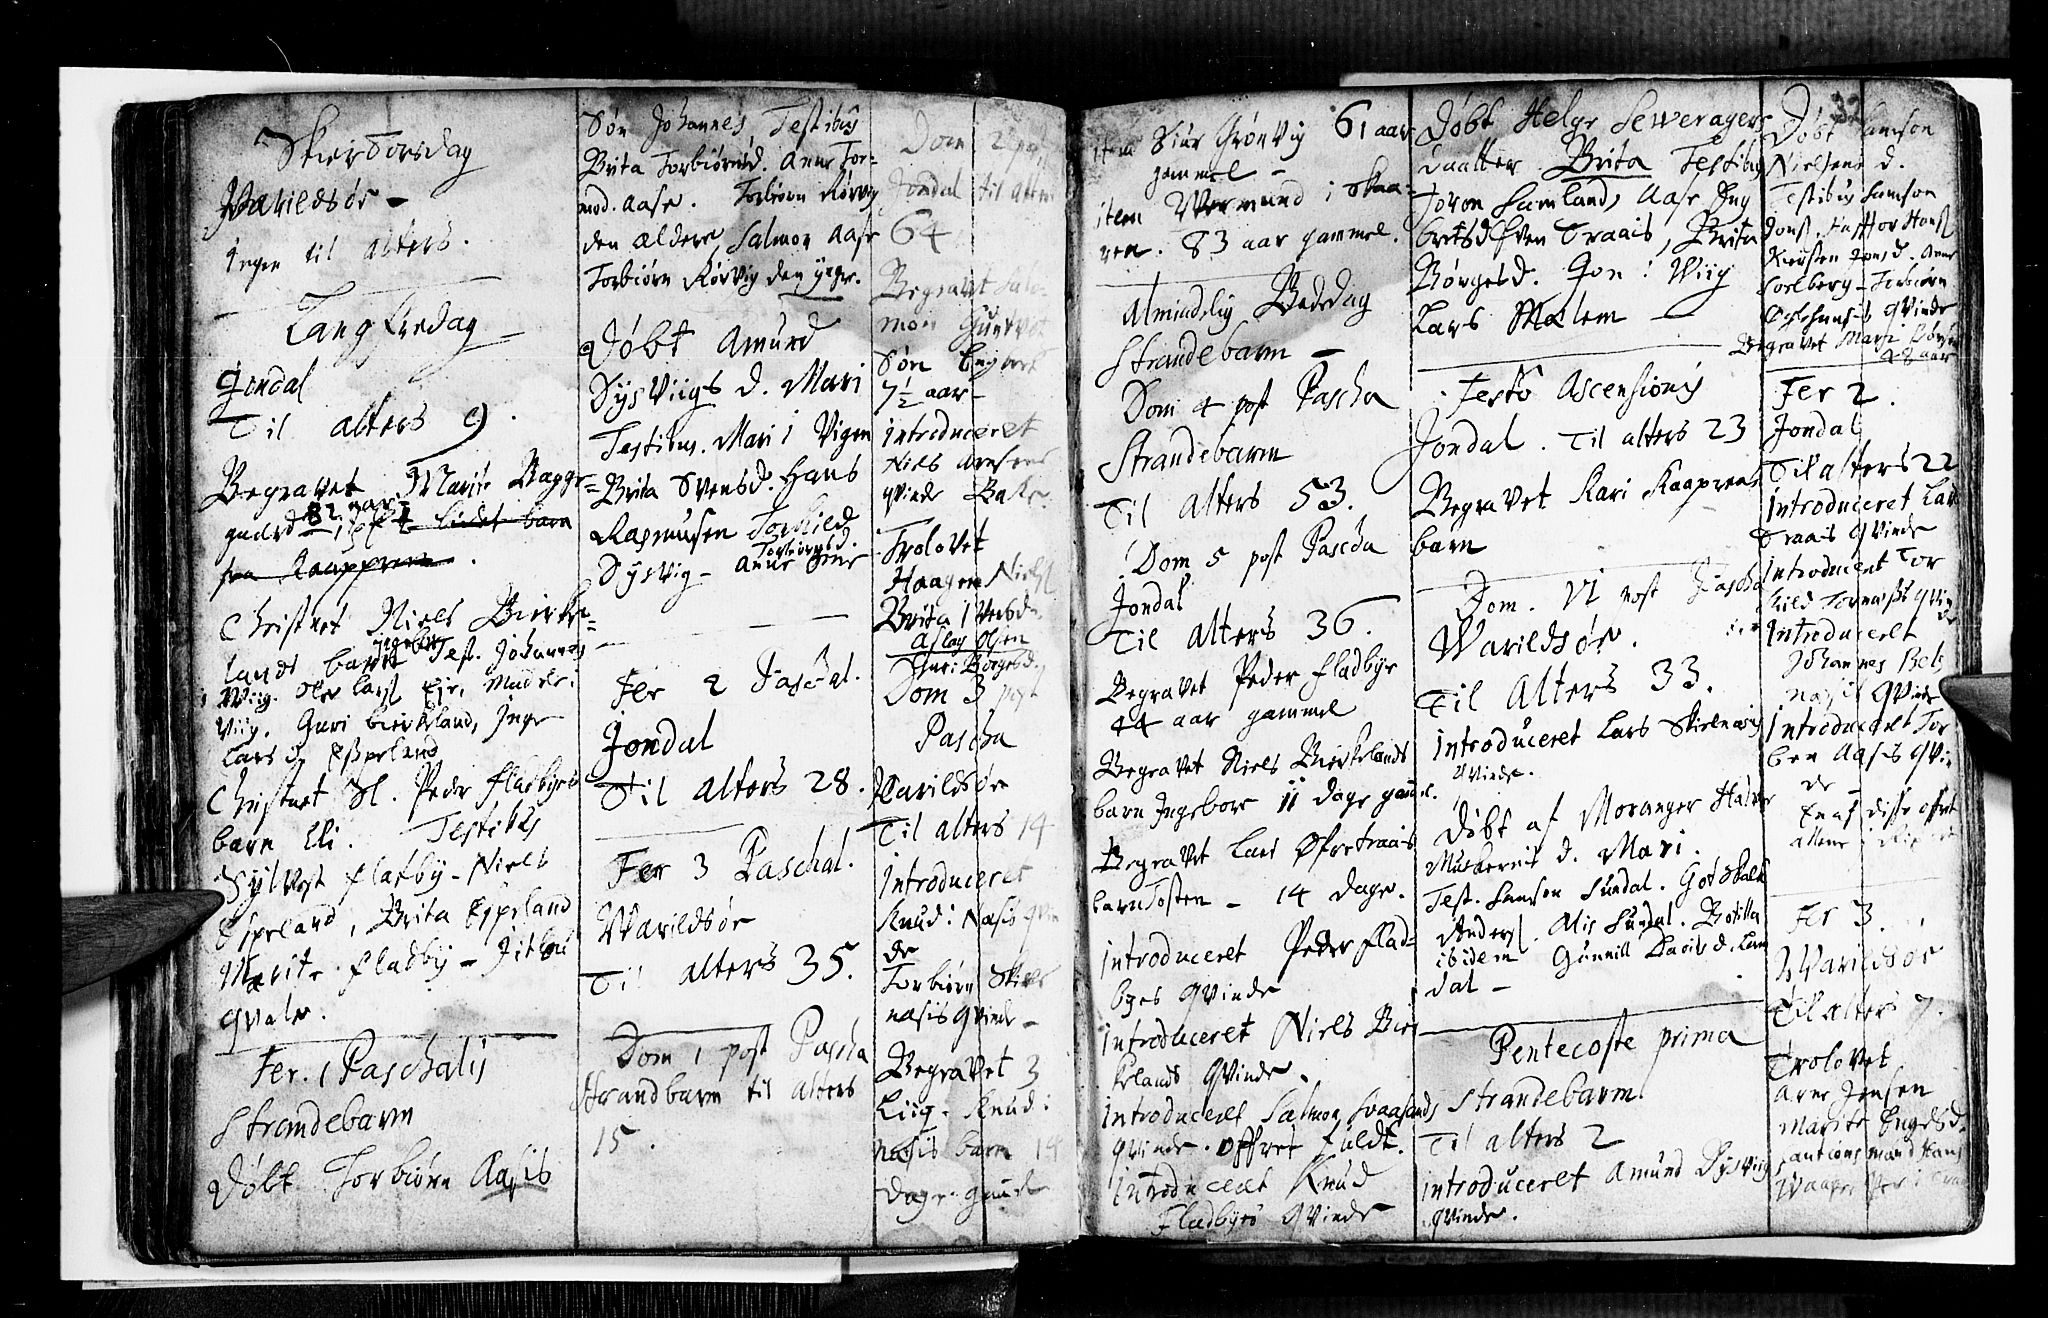 Skiertorsdag
Warildsøe –
Ingen til alters.
Langfredag
Jondal
Til alters 9.
Begravet Marite Bagge=
gaard 82 aar, item et lidet barn
fra Kaapprene.
Christnet Niels Birke=
lands barn Ingebor Test. Johannes
Wiig. Ole Larss Eie, Madele
Viig. Guri birkeland, Inge
Lars d. Espeland
Christnet Sl. Peder Fladbyes
barn Eli. Testibus
Syllvest fladby – Niels
Espeland, Brita Espeland
Marite fladby –
qvale.
Fer. 1 Paschalis
Strandebarm
Døbt Torbiørn Aasis
Søn Johannes, Testibus
Brita Torbiørnsd. Anne Tor=
mod. Aase. Torbiørn Rørvig
den ældere, Salmon Aase
Torbiørn Rørvig den yngre.
Døbt Amund
Sysviigs d. Mari
Testibus. Mari i Vigen
Brita Svensd. Hans
Rasmusen Torkild
Torbiørnsd.
Sysvig – Anne
Fer 2 Paschal.
Jondal
Til alters 28.
Fer 3 Paschal.
Warildsøe
Til alters 35.
Dom 1 post Pascha
Strandbarm til alters
15.
Dom 2 post
Jondal til alters
64
Begravet Salo=
mon
Søn
7½ aar –
Introduceret
Niels
qvinde
Trolovet
Haagen Nielss
Brita Iversd.
Aslag Olsen
Guri Børgesd.
Dom 3 post
Pascha
Warildsøe
Til alters 14
Introduceret
Knud: Nasis qvin
de
Torbiørn Skiel
nasis qvinde –
Begravet 3
Liig. Knud:
nasis barn 14
dage gaml
item Siur Grønvig 61 aar
gammel –
item Wermund i Skaa=
ren. 83 aar gammel.
Almindelig Bededag
Strandebarm –
Dom 4 post Pascha
Strandebarm
Til alters 53.
Dom 5 post Pascha
Jondal
Til alters 36.
Begravet Peder Fladbye
44 aar gammel
Begravet Niels Birkelands
barn Ingebor 11 dage gamel.
Begravet Lars Øfretraais
barn Tosten – 14 dage.
Introduceret Peder Flad=
byes qvinde
Introduceret Niels Bir
kelands qvinde.
Introduceret Salmon Svaasands
qvinde. offret fuldt.
Introduceret Knud
Fladbyes qvinde
Døbt Helge Seweragers
daatter Brita Testibus
Joron Samland, Aase Ing
britsd øven Traais, Brita
Børgesd. Jon i Wiig
Lars Mælem –
Festo Ascensionis
Jondal. Til alters 23
Begravet Kari Kaaprens
barn
Dom. VI post Pascha
Warildsøe.
Til Alters 33.
Introduceret Lars Skielnasis
qvinde.
Døbt af Moranger Halvor
d. Mari.
Test. Samson Sundal. Gotskalk
Anderss. Alis Sundal. Botilla
ibidem Gunnill Davidsd. Sun
dal –
Pentecoste prima
Strandebarm
Til alters 2
Introduceret Amund Sysviigs
qvinde.
32
Døbt Samson
Nielsens d.
Testibus Samson
Kirsten Jonsd. Anne
Torbiørn
qvinde
Begravet Mari
48 aar
Fer 2.
Jondal
Til alters 22
Introduceret Lar
Traais qvinde
Introduceret Tor
kild qvin
de
Introduceret
Johannes
nasis qvinde
Introduceret Tor
ben Aasis qvin
de
disse offret
Fer 3.
Warildsøe
Til alters 7.
Trolovet
Arne Jensen
Marite Engelsd.
Cautions mænd Hans